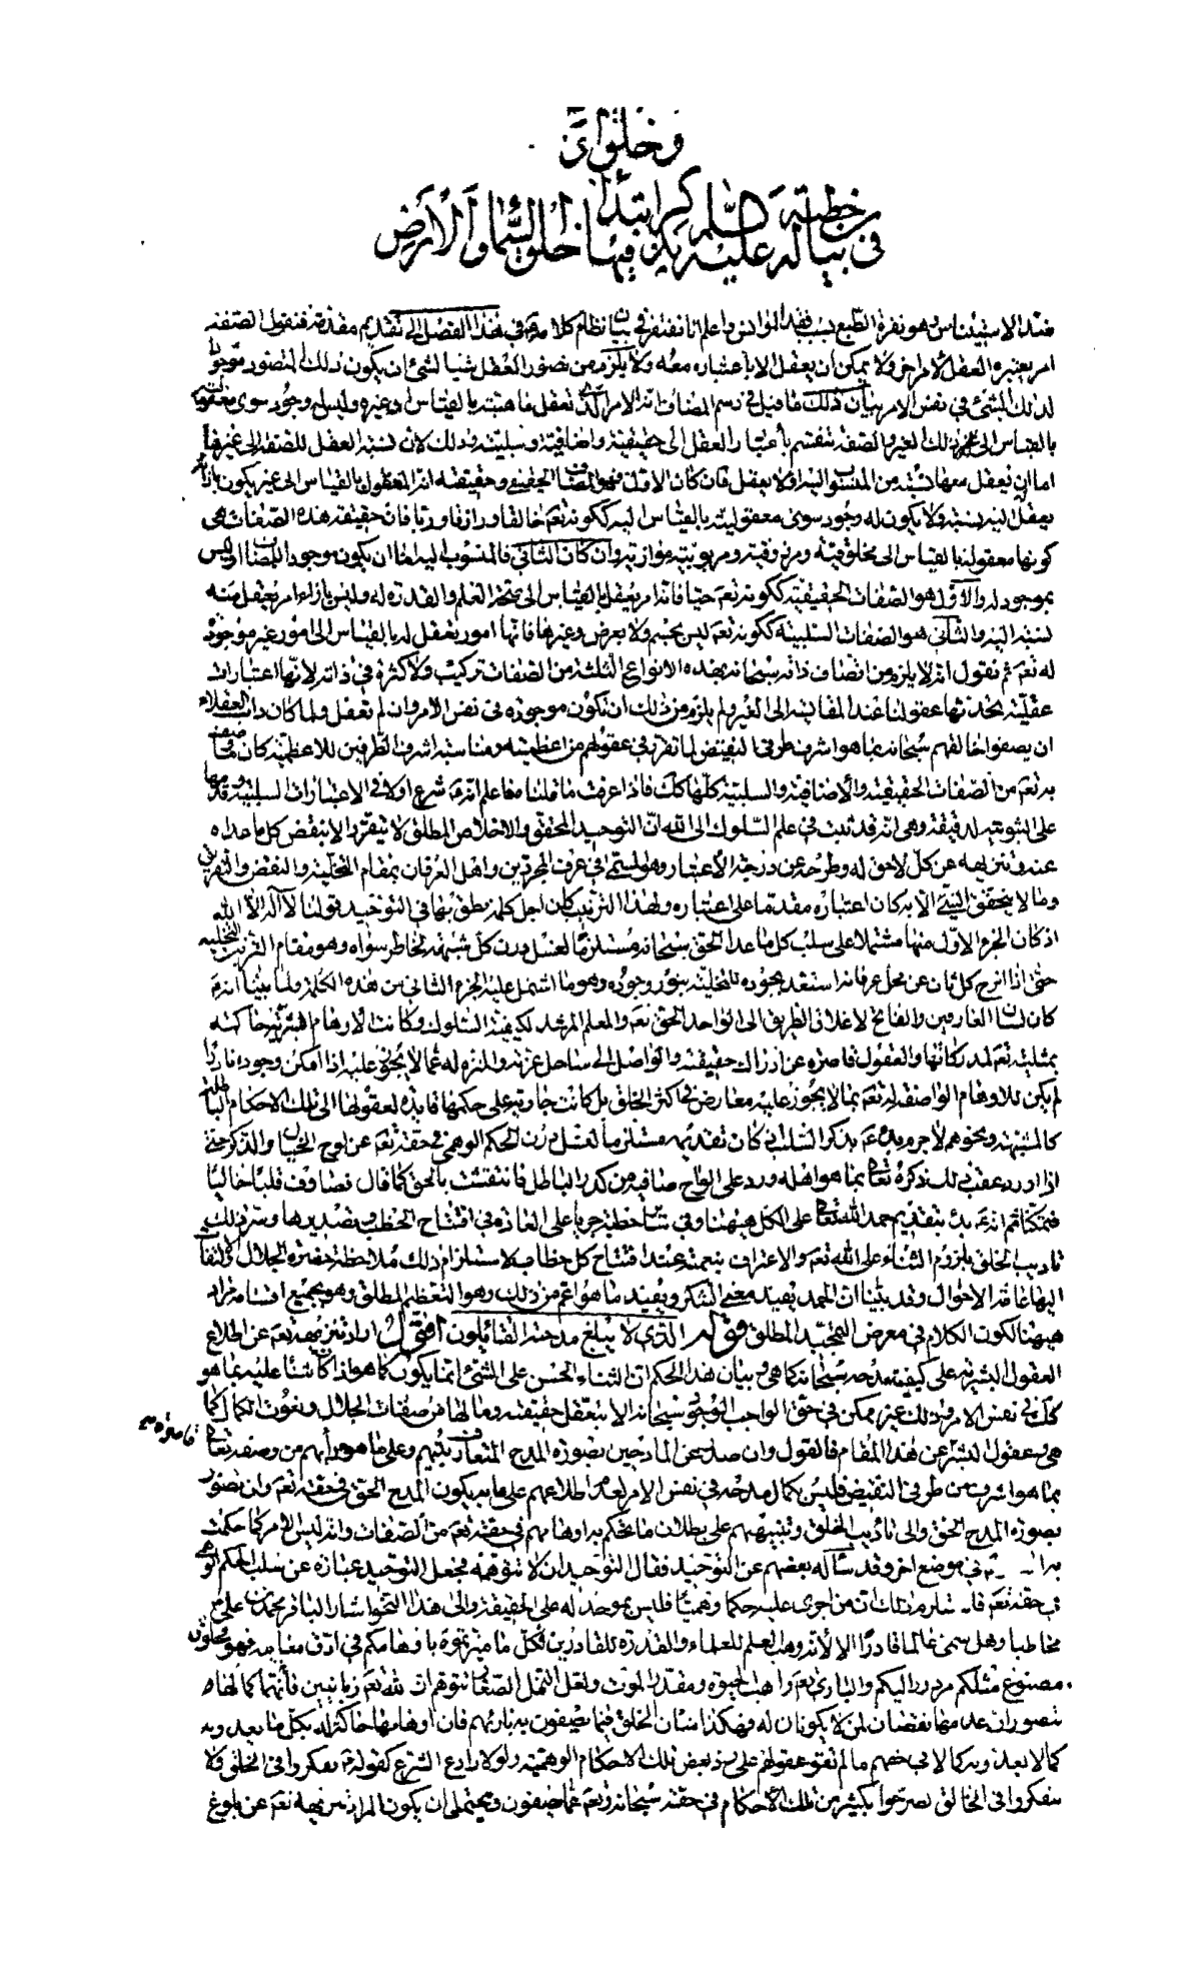 وخلق آدم
في بيان خطبة له عليه السلام يذكر فيها ابتداء خلق السماء والأرض
ضد الاستيناس وهو نفرة الطبع بسبب فقد المؤانس واعلم انا نفتقر في بيان نظام كلامه في هذا الفصل الى تقديم مقدمة فنقول الصفة
امر يعتبره العقل لامر اخر ولا يمكن ان يعقل الا باعتباره معه ولا يلزم من تصور العقل شيئا لشئ ان يكون ذلك المتصور موجودا
لذلك الشئ في نفس الامر بيان ذلك ما قيل في رسم المضاف انه الامر الذي تعقل ماهيته بالقياس الى غيره وليس له وجود سوى معقوليته
بالقياس الى ذلك الغير والصفة تنقسم باعتبار العقل الى حقيقية واضافية وسلبية وذلك لان نسبة العقل للصفة الى غيرها
اما ان يعقل معها نسبة من المنسوب اليه او لا يعقل فان كان الاول فهو المضاف الحقيقي وحقيقته انه المعقول بالقياس الى غير يكون بازائه
يعقل له اليه نسبة ولا يكون له وجود سوى معقوليته بالقياس اليه ككونه تعم خالقا ورازقا وربا فان حقيقة هذه الصفات هي
كونها معقولة بالقياس الى مخلوقية ومرزوقية ومربوبية موازية وان كان الثاني فالمنسوب اليه اما ان يكون موجودا للمضاف اليه او ليس
بموجود له والاول هو الصفات الحقيقية ككونه تعم حيا فانه امر يعقل بالقياس الى صحة العلم والقدرة له وليس بازاء امر يعقل منه
نسبة اليه والثاني هو الصفات السلبية ككونه تعم ليس بجسم ولا بعرض وغيرها فانها امور تعقل له بالقياس الى امور غير موجودة
له تعم ثم نقول انه لا يلزم من اتصاف ذاته سبحانه بهذه الانواع الثلثة من الصفات تركيب ولا كثرة في ذاته لانها اعتبارات
عقلية تحدثها عقولنا عند المقايسة الى الغير ولم يلزم من ذلك ان تكون موجودة في نفس الامر وان لم تعقل ولما كان دأب العقلاء
ان يصفوا خالقهم سبحانه بما هو اشرف طرفي النقيض لما تقرر في عقولهم من اعظميته ومناسبة اشرف الطرفين للاعظمية كان ما وصف
به تعم من الصفات الحقيقية والاضافية والسلبية كلها كك فاذا عرفت ما قلنا فاعلم انه ع شرع اولا في الاعتبارات السلبية وقدمها
على الثبوتية لدقيقة وهي انه قد ثبت في علم السلوك الى الله ان التوحيد المحقق والاخلاص المطلق لا يتقرر الا بنفض كل ما عداه
عنه وتنزيهه عن كل لاحق له وطرحه عن درجة الاعتبار وهو المسمى في عرف المجردين واهل العرفان بمقام التخلية والنفض والتفريق
وما لا يتحقق الشئ الا به كان اعتباره مقدما على اعتباره ولهذا الترتيب كان اجل كلمة نطق بها في التوحيد قولنا لا اله الا الله
اذ كان الجزء الاول منها مشتملا على سلب كل ما عدا الحق سبحانه مستلزما لغسل درن كل شبهة لخاطر سواه وهو مقام التنزيه والتخلية
حتى اذا انزح كل ثان عن محل عرفانه استعد بجوده للتحلية بنور وجوده وهو ما اشتمل عليه الجزء الثاني من هذه الكلمة ولما بينا انه ع
كان لسان العارفين والفاتح لاغلاق الطريق الى الواحد الحق تعم والمعلم المرشد لكيفية السلوك وكانت الاوهام البشرية حاكمة
بمثلية تعم لمدركاتها والعقول قاصرة عن ادراك حقيقته والواصل الى ساحل عزته والمنزه له عما لا يجوز عليه اذا امكن وجوده نادرا
لم يكن للاوهام الواصفة له تعم بما لا يجوز عليه معارض في اكثر الخلق بل كانت جارية على حكمها قايدة لعقولها الى تلك الاحكام الباطلة
كالمشبهة ونحوهم لا جرم بدء ع بذكر السلب اذ كان تقديمه مستلزما لغسل درن الحكم الوهمي في حقه تعم عن لوح الخيال والذكر حتى
اذا اورد عقيب ذلك ذكره تعالى بما هو اهله ورد على الواح صافية من كدر الباطل فانتقشت بالحق كما قال فصادف قلبا خاليا
فتمكنا ثم انه ع بدء بتقديم حمد الله تعالى على الكل هيهنا وفي ساير خطبه جريا على العادة في افتتاح الخطب وتصديرها وسر ذلك
تاديب الخلق بلزوم الثناء على الله تعم والاعتراف بنعمته عند افتتاح كل خطاب لاستلزام ذلك ملاحظة حضرة الجلال والالتفات
اليها عامة الاحوال وقد بينا ان الحمد يفيد معنى الشكر ويفيد ما هو اعم من ذلك وهو التعظيم المطلق وهو بجميع اقسامه مراد
هيهنا لكون الكلام في معرض التمجيد المطلق قوله الذي لا يبلغ مدحته القائلون اقول اراد تنزيهه تعم عن اطلاع
العقول البشرية على كيفية مدحه سبحانه كما هي وبيان هذا الحكم ان الثناء الحسن على الشئ انما يكون كما هو اذا كان ثناء عليه بما هو
كك في نفس الامر وذلك غير ممكن في حق الواجب الوجود سبحانه الا بتعقل حقيقته وما لها من صفات الجلال ونعوت الكمال كما
هي وعقول البشر قاصرة عن هذا المقام فالقول وان صدر عن المادحين بصورة المدح المتعارف بينهم وعلى ما هو دأبهم من وصفه تعالى
بما هو اشرف من طرفي النقيض فليس بكمال مدحه في نفس الامر لعدم اطلاعهم على ما به يكون المدح الحق في حقه تعم وان تصور
بصورة المدح الحق والى تأديب الخلق وتنبيههم على بطلان ما تحكم به اوهامهم في حقه تعم من الصفات وانه ليس الامر كما حكمت
به في موضع اخر وقد سأله بعضهم عن التوحيد فقال التوحيد ان لا تتوهمه فجعل التوحيد عبارة عن سلب الحكم الوهمي
في حقه تعم فاستلزم ذلك ان من اجرى عليه حكما وهميا فليس بموحد له على الحقيقة والى هذا النحو اشار الباقر محمد بن علي ع
مخاطبا وهل سمى عالما قادرا الا لانه وهب العلم للعلماء والقدرة للقادرين فكل ما ميزتموه باوهامكم في ادق معانيه فهو مخلوق
مصنوع مثلكم مردود اليكم والباري تعم واهب الحيوة ومقدر الموت ولعل النمل الصغار تتوهم ان لله تعم زبانيين فانهما كمالها
تتصور ان عدمها نقصان لمن لا يكونان له فهكذا شان الخلق فيما يصفون به بارئهم فان اوهامها حاكمة له بكل ما يعدونه
كمالا في حقهم ما لم تقو عقولهم على رد بعض تلك الاحكام الوهمية ولولا رادع الشرع كقوله ع تفكروا في الخلق ولا
تتفكروا في الخالق لصرحوا بكثير من تلك الاحكام في حقه سبحانه وتعم عما يصفون ويحتمل ان يكون المراد تنزيهه تعم عن بلوغ